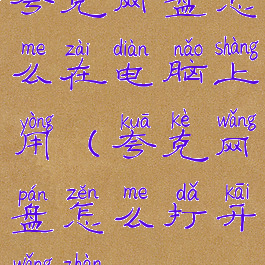 夸克网盘怎
me zài diàn nǎo shàng
么在电脑上
yòng kuā kè wǎng
用（夸克网
pán zěn me dǎ kāi
盘怎么打开
wǎng zhàn